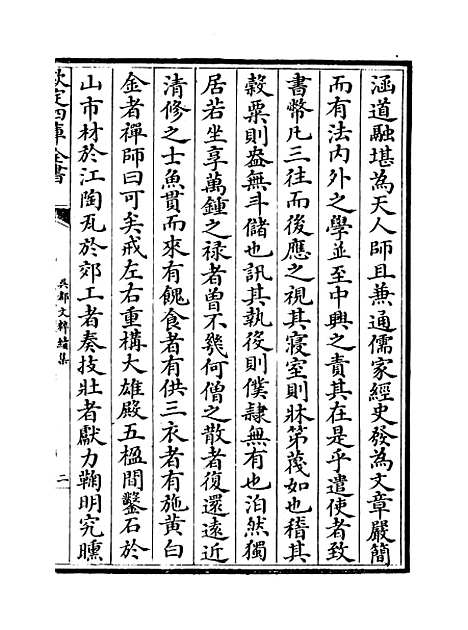 涵道融堪為天人師且兼通儒家經史發為文章嚴簡
而有法内外之學並至中興之責其在是乎遣使者致
書幣凡三往而後應之視其寢室則牀笫蔑如也稽其
穀粟則盎無斗儲也訊其執役則僕隷無有也泊然獨
居若坐享萬鍾之禄者曽不幾何僧之散者復還遠近
清修之士魚貫而來有餽食者有供三衣者有施黄白
金者禪師曰可矣戒左右重構大雄殿五楹間鑿石於
山市材於江陶瓦於郊工者奏技壯者獻力鞠明究曛
欽定四庫全書
吳都文粹續集
二